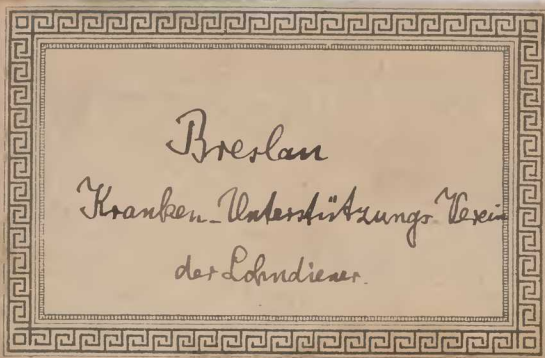 Breslau
Kranken-Unterstützungs-Verein
der Lohndiener.